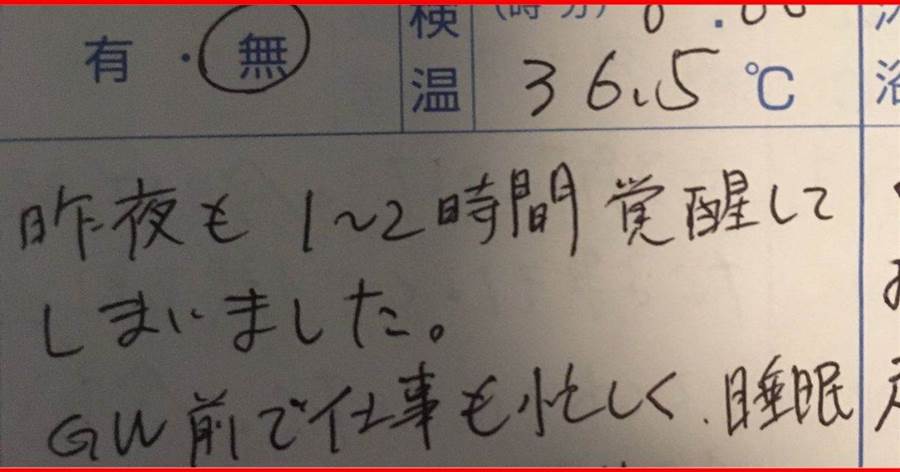 有・無 検温 (時 分) 36.5℃ 浴
昨夜も 1~2時間 覚醒して
しまいました。
GW前で仕事も忙しく、睡眠